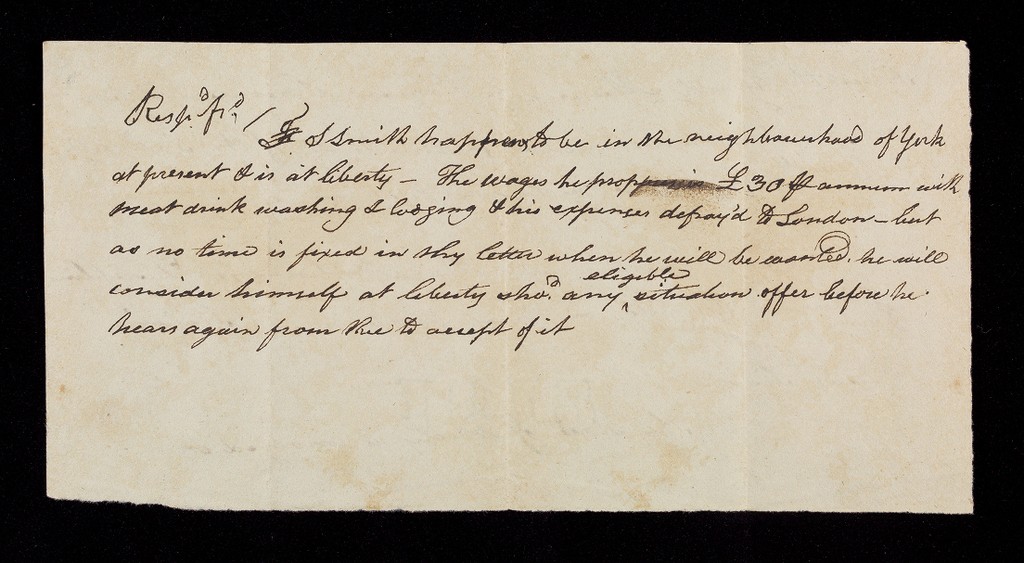 Resp.d fr.d /
J Smith happens to be in the neighbourhood of York
at present & is at liberty – The wages he £30 ⅌ annum with
meat drink washing & lodging & his expenses defray'd to London – but
as no time is fixed in thy letter when he will be wanted. he will
eligible
consider himself at liberty sho.d any ‸ situation offer before he
hears again from thee to accept of it